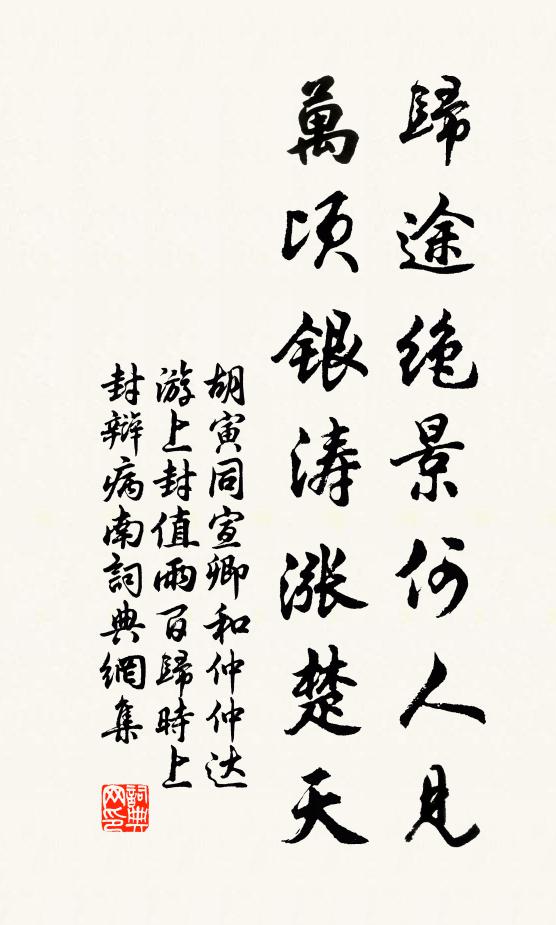 歸途绝景何人見
萬頃银涛漲楚天
胡寅同宣卿和仲仲达
游上封值雨百歸時上
封辩病南詞典網集
詞典网印